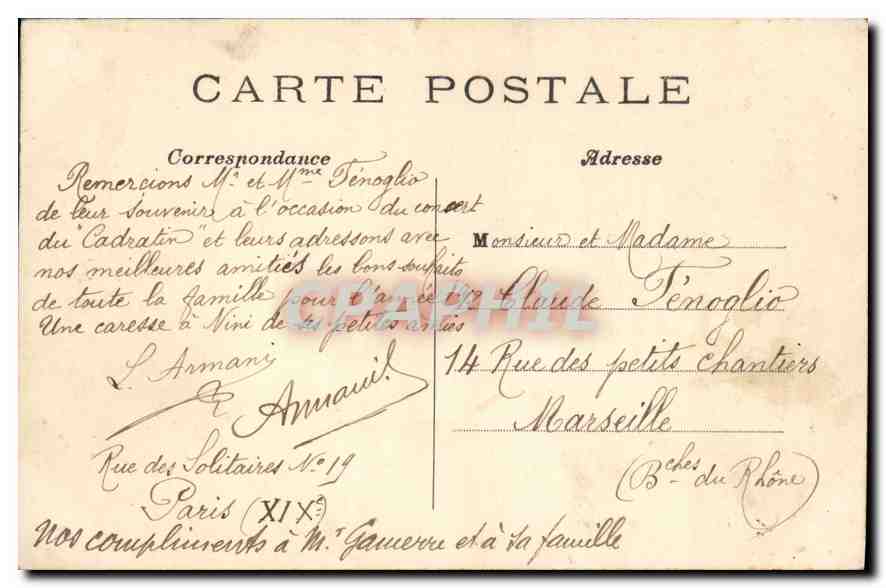 CARTE POSTALE
Correspondance
Remercions Mr et Mme Ténoglio
de leur souvenir à l'occasion du concert
du "Cadratin" et leurs adressons avec
nos meilleures amitiés les bons souhaits
de toute la famille pour l'année
Une caresse à Nini de ses petites amies
L. Armani
Rue des Solitaires No 19
Paris (XIXe)
Nos compliments à Mr Gamerre et à sa famille
Adresse
Monsieur et Madame
Claude Ténoglio
14 Rue des petits chantiers
Marseille
(Bches du Rhône)
CPAPHIL